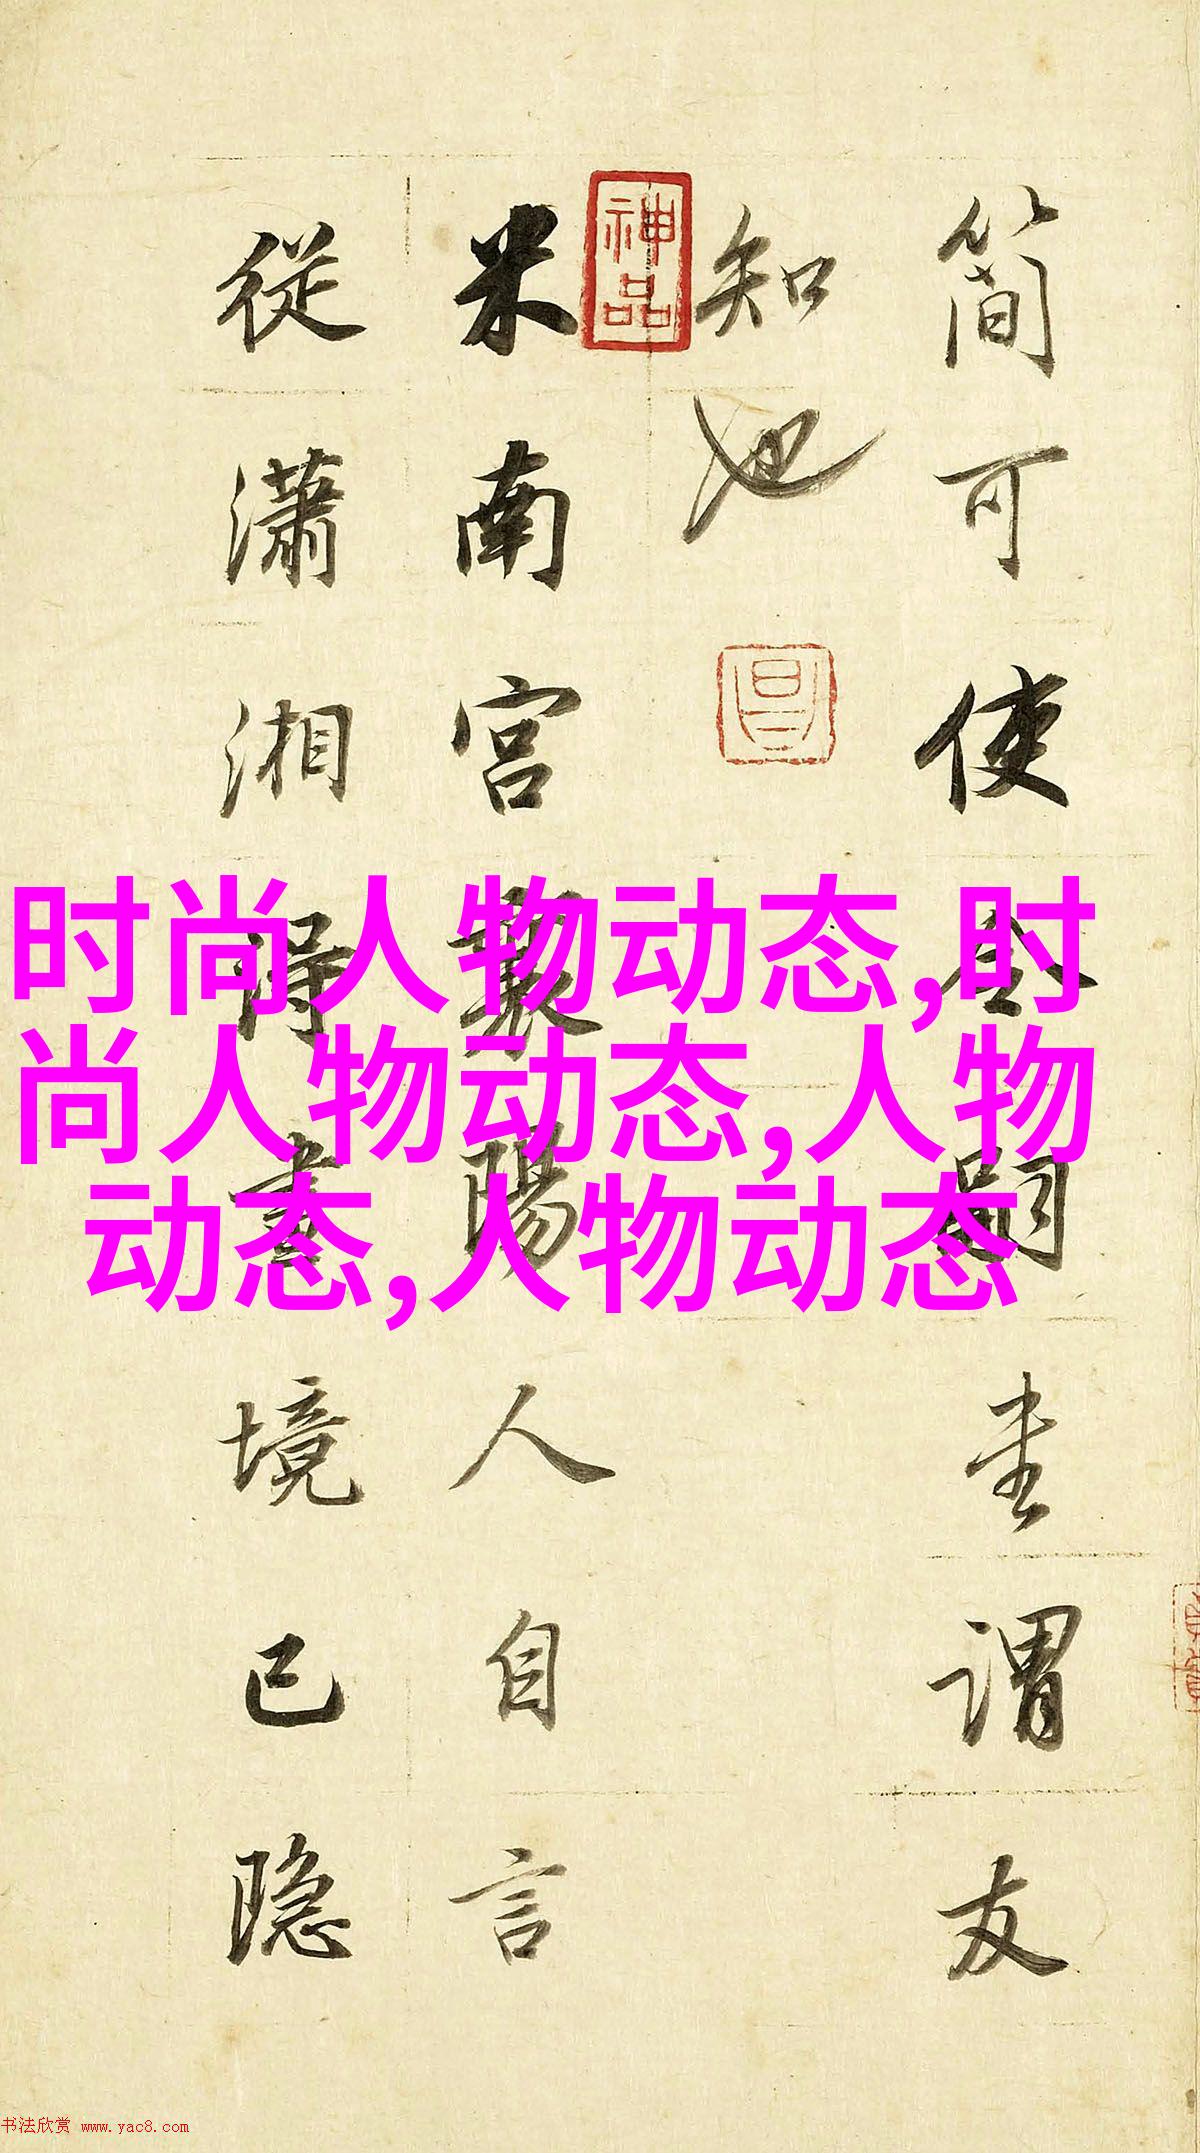 簡可使令嗣謂友
知也
神品
米南宮襄陽人自言
從瀟湘得畫境已隱
时尚人物动态,时
尚人物动态,人物
动态,人物动态
书法欣赏 www.yac8.com